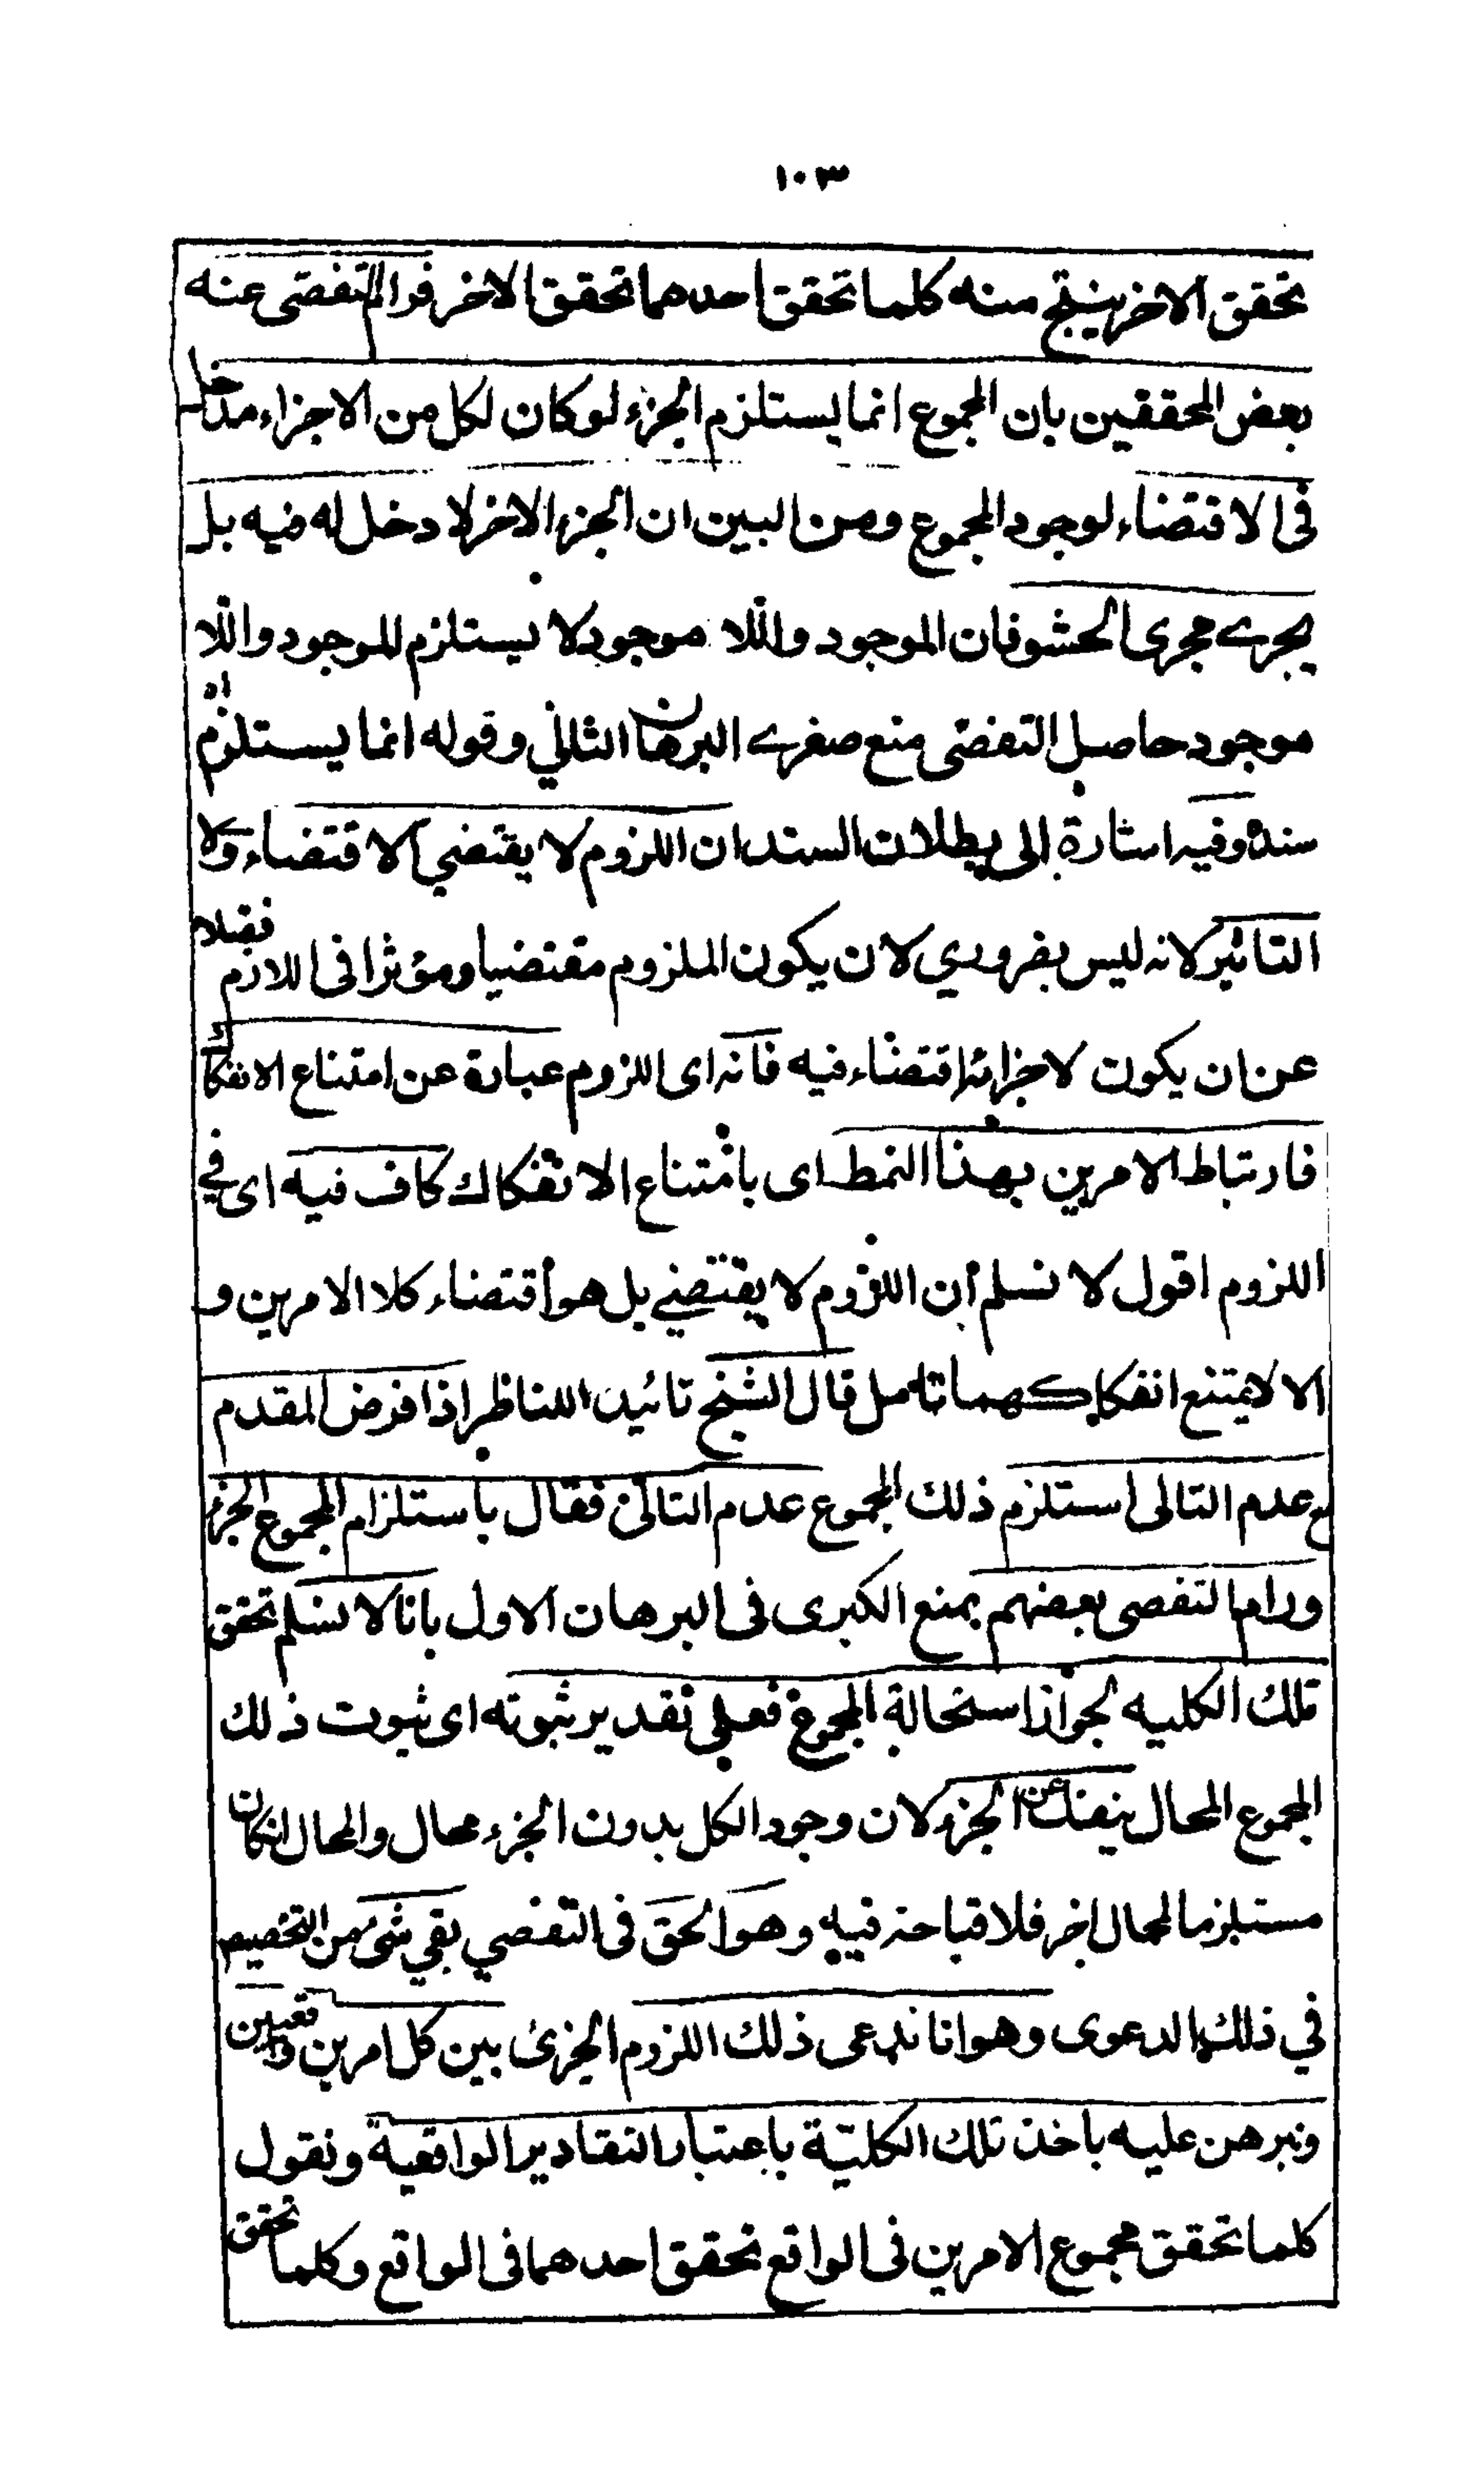 ١٠٣
تحقق الاخر ينتج منه كلما تحقق احدهما تحقق الاخر فرام التفصى عنه
بعض المحققين بان المجموع انما يستلزم الجزء لو كان لكل من الاجزاء مدخل
فى الاقتضاء لوجود المجموع ومن البين ان الجزء الاخر لا دخل له فيه بل
يجرے مجرى الحشو فان الموجود واللا موجود لا يستلزم للموجود واللا
موجود حاصل التفصى منع صغرے البرهان الثاني وقوله انما يستلزم اه
سنده وفيه اشارة الى بطلان السند ان اللزوم لا يقتضي الاقتضاء ولا
التاثير لانه ليس بضروري لان يكون الملزوم مقتضيا ومؤثرا فى اللازم فضلا
عن ان يكون لاجزائه اقتضاء فيه فانه اى اللزوم عبارة عن امتناع الانفكاك
فارتباط الامرين بهذا النمط اى بامتناع الانفكاك كاف فيه اى في
اللزوم اقول لا نسلم ان اللزوم لا يقتضي بل هو اقتضاء كلا الامرين و
الا لا يمتنع انفكاكهما تامل قال الشيخ تائيدا للناظر اذا فرض المقدم
مع عدم التالى استلزم ذلك المجموع عدم التالي فقال باستلزام المجموع الجزء
ورام التفصى بعضهم بمنع الكبرى فى البرهان الاول بانا لا نسلم تحقق
تلك الكليه لجواز استحالة المجموع فعلى تقدير ثبوته اى ثبوت ذلك
المجموع المحال ينفك عن الجزء لان وجود الكل بدون الجزء محال والمحال انكان
مستلزما لمحال اخر فلا قباحة فيه وهو الحق فى التفصي بقي شئ من التخصيص
في ذلك الدعوى وهو انا ندعى ذلك اللزوم الجزئ بين كل امرين واقعيين
ونبرهن عليه باخذ تلك الكليّة باعتبار التقادير الواقعية ونقول
كلما تحقق مجموع الامرين فى الواقع تحقق احدهما فى الواقع وكلما تحقق